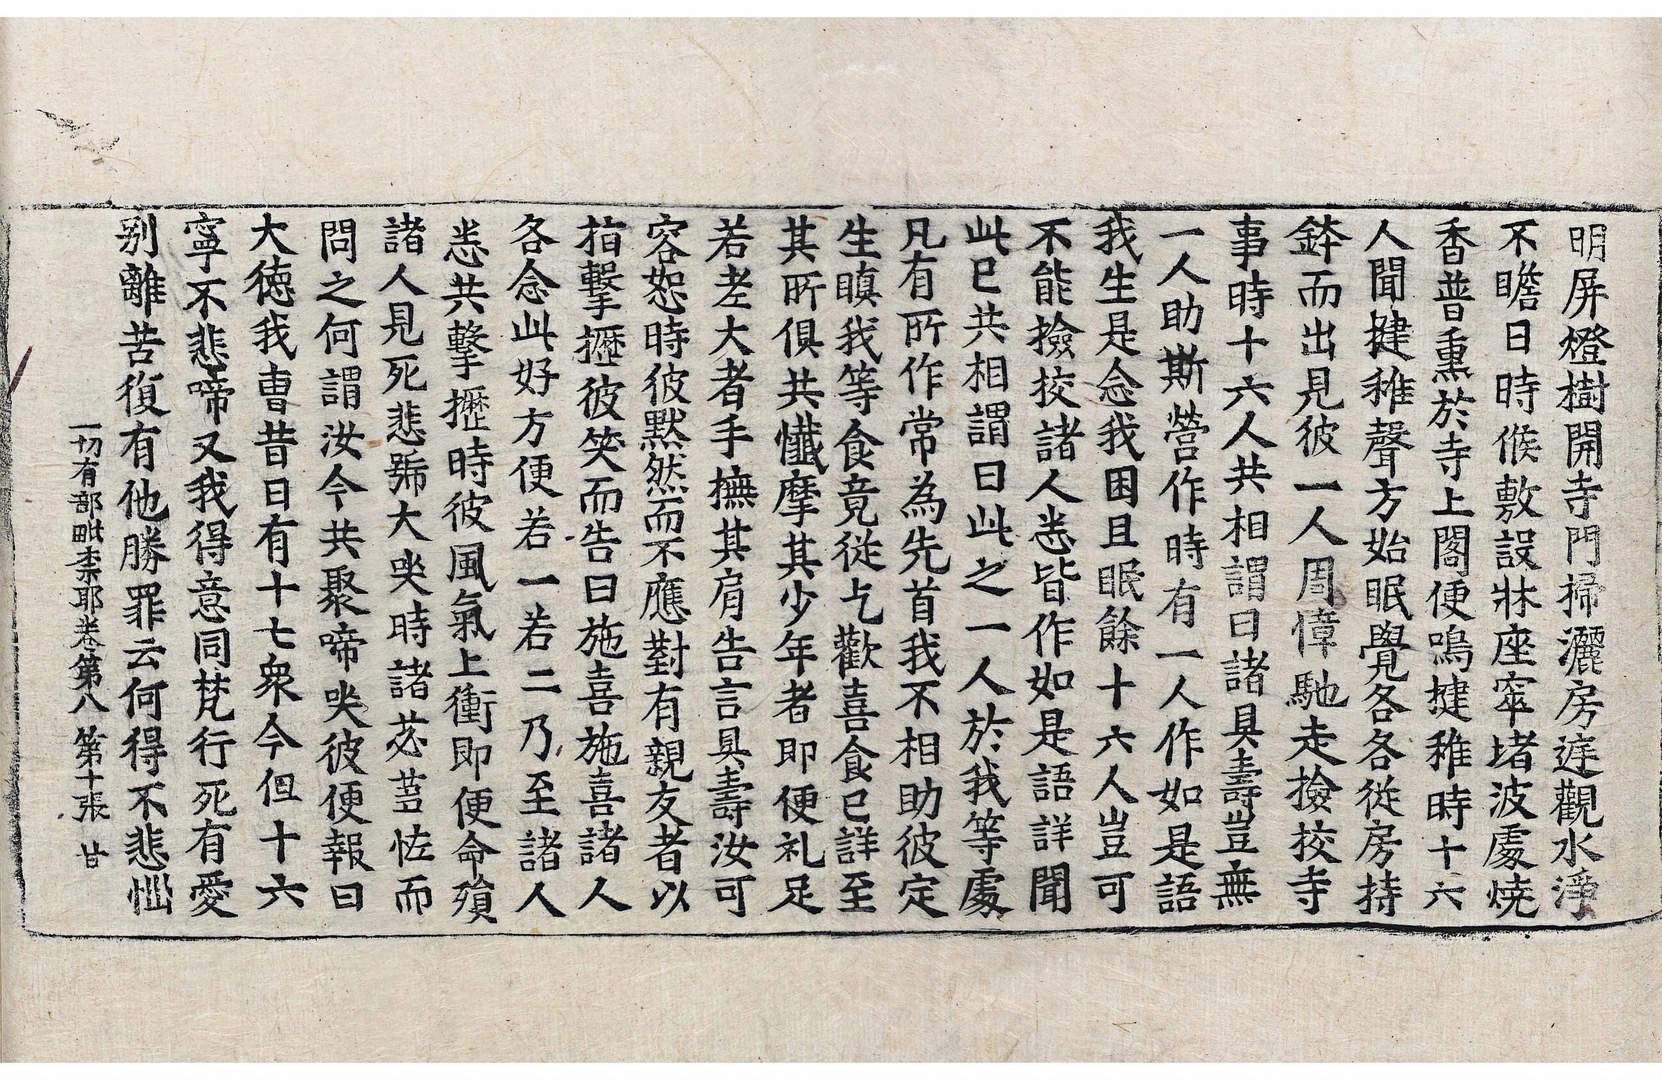 明屏燈樹開寺門掃灑房庭觀水淨
不瞻日時候敷設牀座窣堵波處燒
香普熏於寺上閣便鳴揵稚時十六
人聞揵稚聲方始眠覺各各從房持
鉢而出見彼一人周慞馳走撿挍寺
事時十六人共相謂曰諸具壽豈無
一人助斯營作時有一人作如是語
我生是念我困且眠餘十六人豈可
不能撿挍諸人悉皆作如是語詳聞
此已共相謂曰此之一人於我等處
凡有所作常為先首我不相助彼定
生瞋我等食竟從乞歡喜食已詳至
其所俱共懺摩其少年者即便礼足
若老大者手撫其肩告言具壽汝可
容恕時彼默然而不應對有親友者以
指擊攊彼笑而告曰施喜施喜諸人
各念此好方便若一若二乃至諸人
悉共擊攊時彼風氣上衝即便命殞
諸人見死悲號大哭時諸苾芻怪而
問之何謂汝今共聚啼哭彼便報曰
大德我曹昔日有十七衆今但十六
寧不悲啼又我得意同梵行死有愛
別離苦復有他勝罪云何得不悲惱
一切有部毗柰耶卷第八 第十張 甘